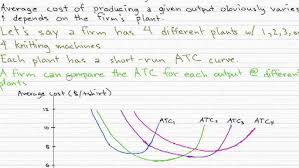 Average cost of producing a given output obviously varies
& depends on the firm's plant.
Let's say a firm has 4 different plants w/ 1,2,3, or
4 knitting machines
Each plant has a short-run ATC curve.
A firm can compare the ATC for each output @ different
plants.
Average Cost ($/tshirt)
12
ATC₁ ATC₂ ATC₃ ATC₄
10
8